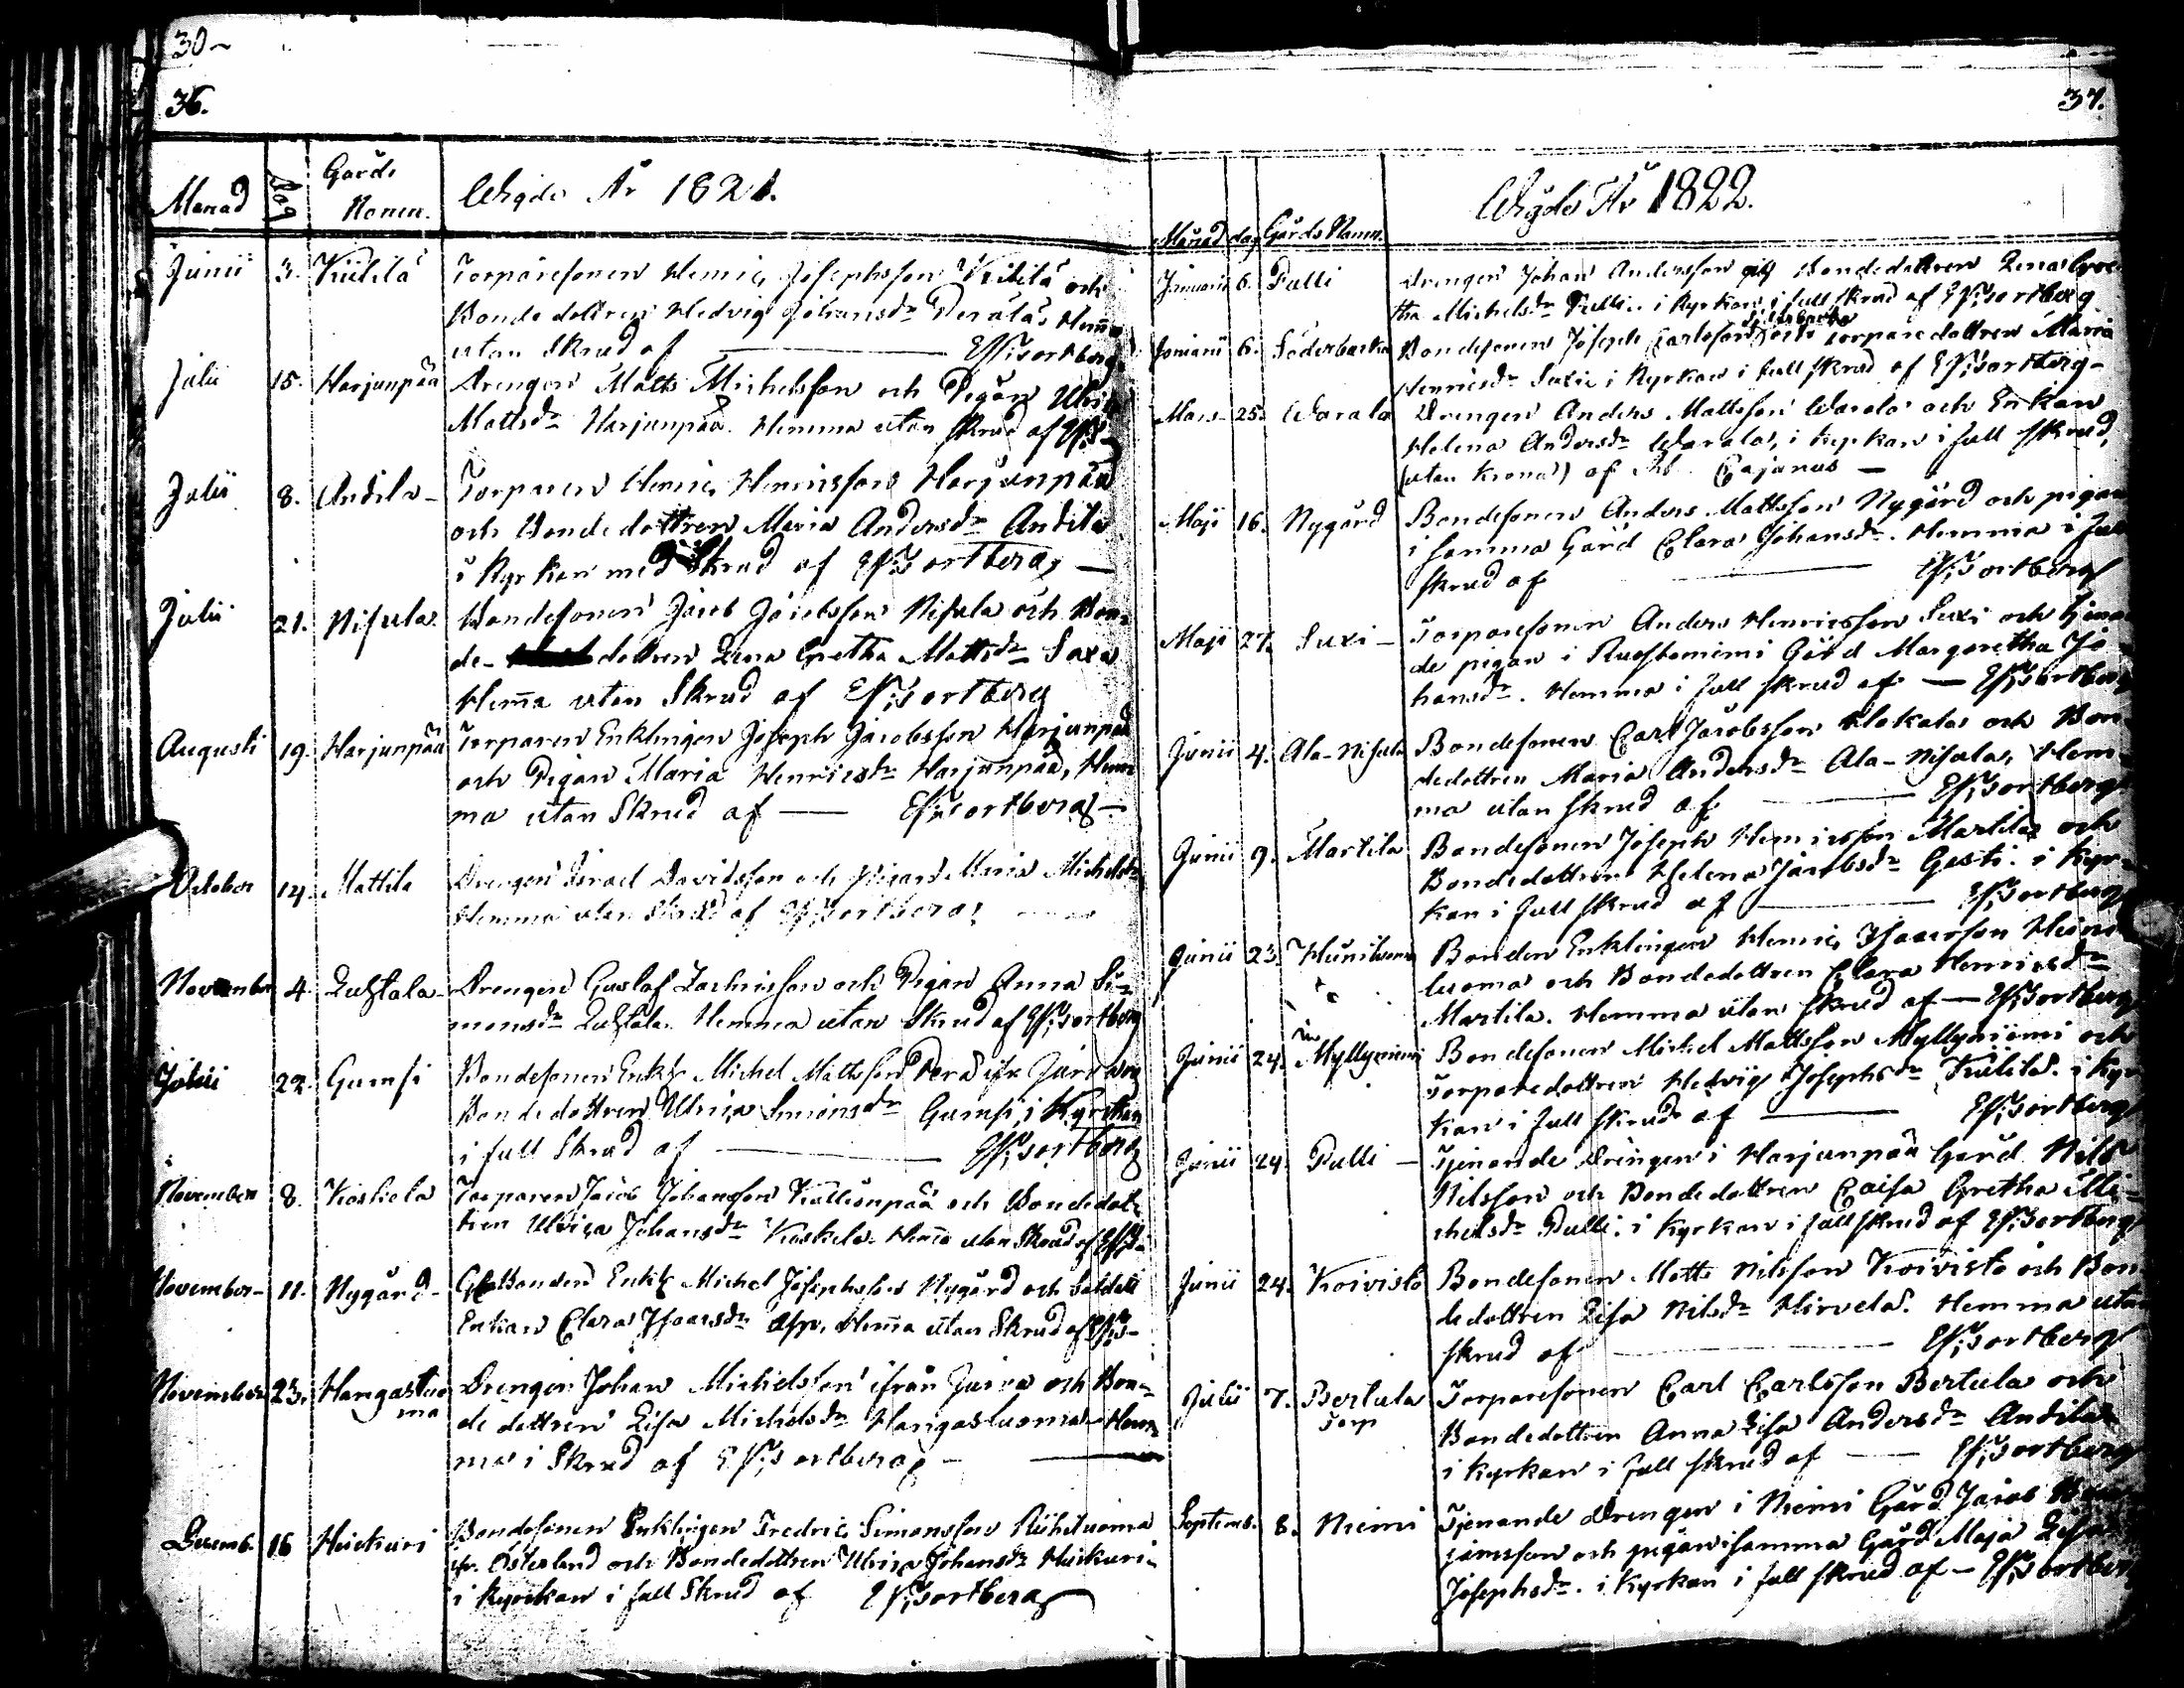 30
36.
Månad Dag Gårds Namn. Wigde År 1821.
Junii 3. Kiitilä Torparesonen Henric Josephsson Kiitilä och
Bonde dottren Hedvig Johansdr Perälä, Hemma
utan Skrud af E. G. Bortberg
Julii 15. Harjunpää Drengen Matts Michelsson och Pigan Ulrica
Mattsdr Harjunpää. Hemma utan Skrud af
Julii 8. Andila Torparen Henric Henricsson Harjunpää
och Bonde dottren Maria Andersdr Andila
i Kyrkan med Skrud af
Julii 21. Nisula Bondesonen Jacob Jacobsson Nisula och Bon-
de- dottren Lena Gretha Mattsdr Saxa
Hemma utan Skrud af
Augusti 19. Harjunpää Torparen Enklingen Joseph Jacobsson Harjunpää
och Pigan Maria Henricsdr Harjunpää, Hem
ma utan Skrud af
October 14. Mattila Drengen Israel Davidsson och Pigan Maria Michelsdr
Hemma utan Skrud af
November 4. Luhtala Drengen Gustaf Zachrisson och Pigan Anna Si-
monsdr Luhtala. Hemma utan Skrud af
Julii 22. Gumsi Bondesonen Enkl. Michel Mattsson Perä ifr. Jurva och
Bondedottren Ulrica Simonsdr Gumsi, i Kyrkan
i full Skrud af
November 8. Koskela Torparen Jacob Johansson Kallionpää och Bondedot-
tren Ulrica Johansdr Koskela. Hemma utan Skrud af
November 11. Nygård Bonden Enkl. Michel Josephsson Nygård och Soldati
Enkan Clara Isaacsdr Asp, Hemma utan Skrud af
November 23. Hangasluo
ma Drengen Johan Michelsson ifrån Jurva och Bon-
de dottren Lisa Michelsdr Hangasluoma. Hem-
ma i Skrud af
Decemb. 16 Heickuri Bondesonen Enklingen Fredric Simonsson Riihiluoma
ifr. Österland och Bondedottren Ulrica Johansdr Heikuri
i Kyrkan i full Skrud af
37.
Månad dag Gårds Namn. Wigde År 1822.
Januarii 6. Pulli Drengen Johan Andersson och Bondedottren Lena Gre
tha Michelsdr Pulli. i Kyrkan i full skrud af
Januarii 6. Söderbacka Bondesonen Joseph Carlsson Söderbacka och Torparedottren Maria
Henricsdr Luxi i Kyrkan i full skrud af
Mars 25. Warala Drengen Anders Mattsson Warala och Enkan
Helena Andersdr Warala, i kyrkan i full skrud,
(utan Krona) af Cajanus
Maji 16. Nygård Bondesonen Anders Mattsson Nygård och pigan
i samma Gård Clara Johansdr. Hemma i full
skrud af
Maji 27. Luxi Torparesonen Anders Henricsson Luxi och tjenan
de pigan i Ruostoniemi Gård Margaretha Jo
hansdr. Hemma i full skrud af
Junii 4. Ala-Nisula Bondesonen Carl Jacobsson Hakala och Bon
dedottren Maria Andersdr Ala-Nisula, Hem
ma utan skrud af
Junii 9. Martila Bondesonen Joseph Henricsson Martila och
Bondedottren Helena Jacobsdr Gesti. i Kyr-
kan i full skrud af
Junii 23. Bonden Enklingen Henric Isaacsson
luoma och Bondedottren Clara Henricsdr
Martila. Hemma utan skrud af
Junii 24. Myllyniemi Bondesonen Michel Mattsson Myllyniemi och
Torparedottren Hedvig Josephsdr Kiitilä. i Kyr
kan i full skrud af
Junii 24. Pulli Tjenande Drengen i Harjunpää Gård Nils
Nilsson och Bondedottren Caisa Gretha Mi-
chelsdr Pulli. i Kyrkan i full skrud af
Junii 24. Koivisto Bondesonen Matts Nilsson Koivisto och Bon
dedottren Lisa Nilsdr Hirvelä. Hemma utan
skrud af
Julii 7. Bertula
Torp Torparesonen Carl Carlsson Bertula och
Bondedottren Anna Lisa Andersdr Andila
i Kyrkan i full skrud af
Septemb. 8. Niemi Tjenande Drengen i Niemi Gård Jacob
jamsson och pigan i samma Gård Maja Lisa
Josephsdr. i Kyrkan i full skrud af